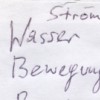 Ström
Wasser
Bewegung